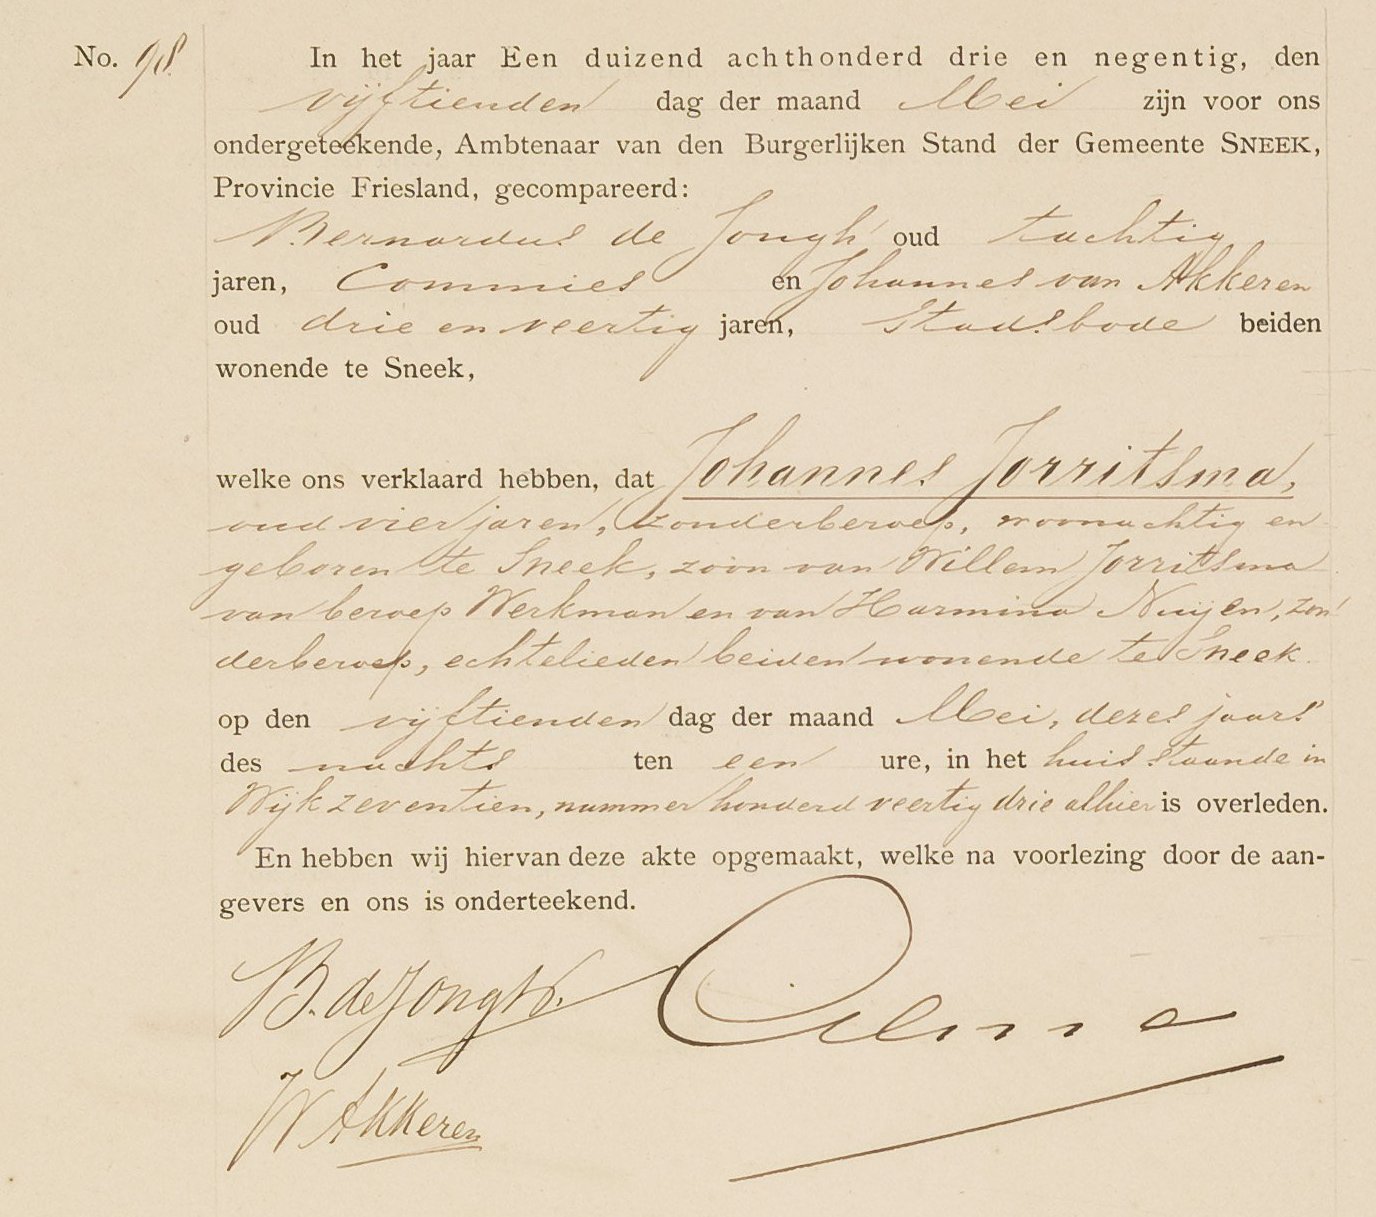 No. 98. In het jaar Een duizend achthonderd drie en negentig, den
vijftienden dag der maand Mei zijn voor ons
ondergeteekende, Ambtenaar van den Burgerlijken Stand der Gemeente SNEEK,
Provincie Friesland, gecompareerd:
Bernardus de Jongh oud tachtig
jaren, Commies en Johannes van Akkeren
oud drie en veertig jaren, Stadsbode beiden
wonende te Sneek,
welke ons verklaard hebben, dat Johannes Jorritsma,
oud vier jaren, zonder beroep, woonachtig en
geboren te Sneek, zoon van Willem Jorritsma
van beroep Werkman en van Harmina Nuijen, zon
der beroep, echtelieden beiden wonende te Sneek.
op den vijftienden dag der maand Mei, dezes jaars
des nachts ten een ure, in het huis staande in
Wijk zeventien, nummer honderd veertig drie alhier is overleden.
En hebben wij hiervan deze akte opgemaakt, welke na voorlezing door de aan-
gevers en ons is onderteekend.
B. de Jongh.
Akkeren